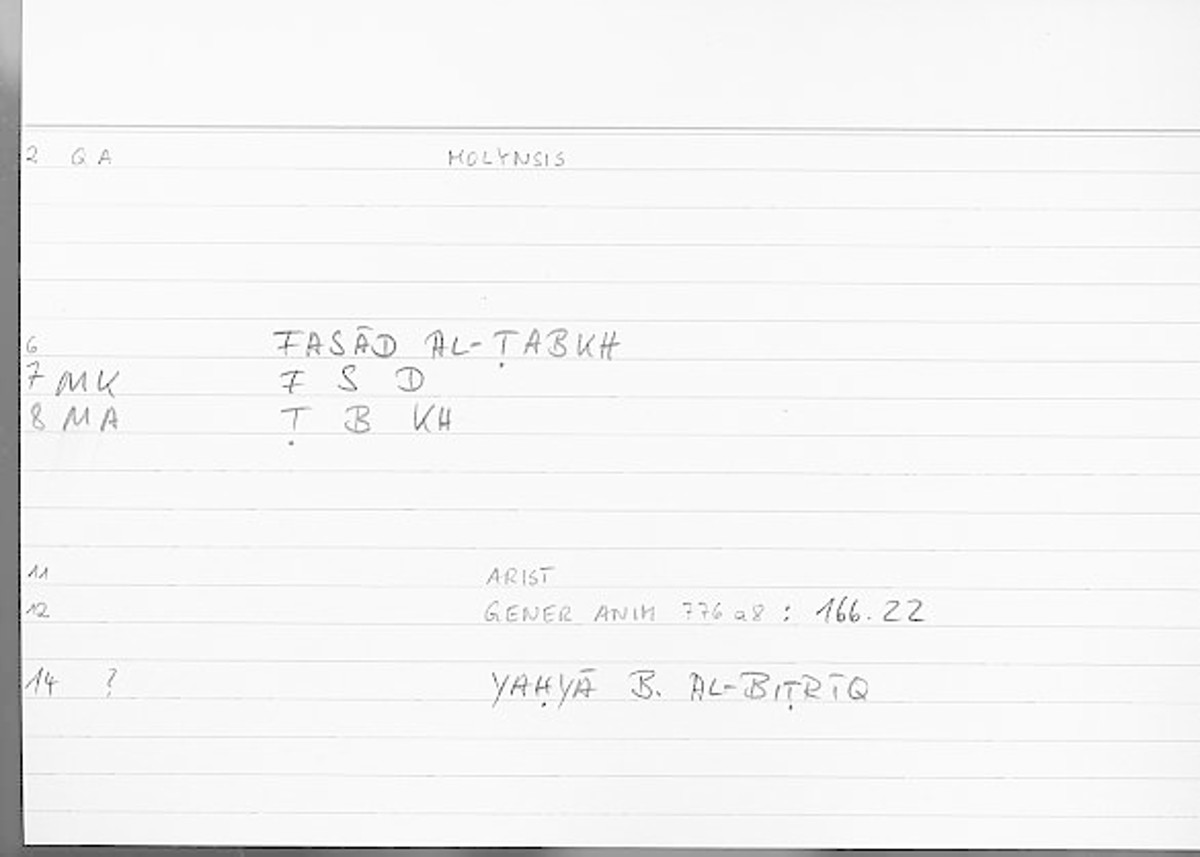 2 Q A MOLYNSIS
6 FASĀD AL-ṬABKH
7 MK F S D
8 MA Ṭ B KH
11 ARIST
12 GENER ANIM 776 a8 : 166.22
14 ? YAḤYĀ B. AL-BIṬRĪQ